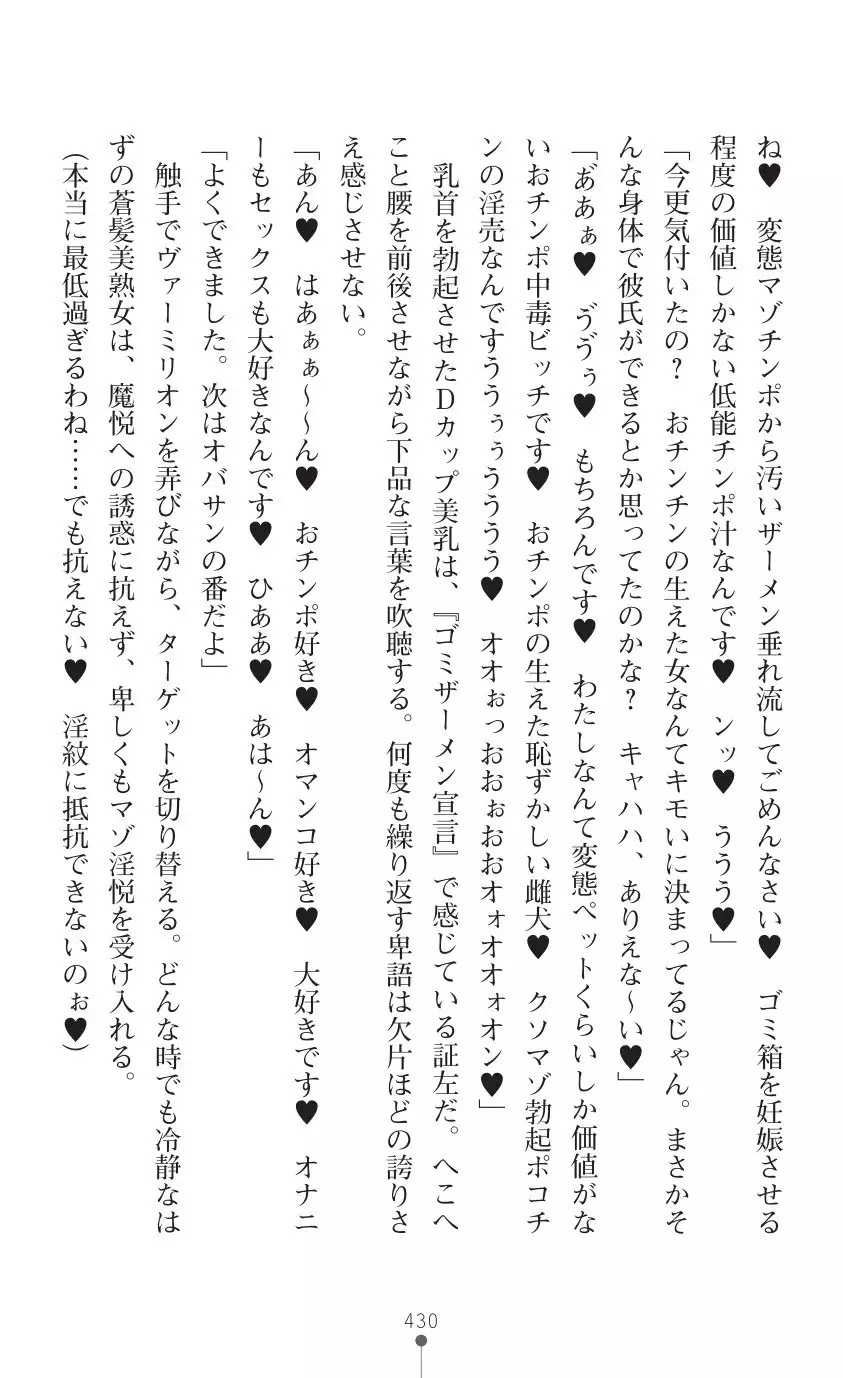 ね♥　変態マゾチンポから汚いザーメン垂れ流してごめんなさい♥　ゴミ箱を妊娠させる
程度の価値しかない低能チンポ汁なんです♥　ンッ♥　ううう♥」
「今更気付いたの？　おチンチンの生えた女なんてキモいに決まってるじゃん。まさかそ
んな身体で彼氏ができるとか思ってたのかな？　キャハハ、ありえな〜い♥」
「あ゙あぁ♥　ゔゔぅ♥　もちろんです♥　わたしなんて変態ペットくらいしか価値がな
いおチンポ中毒ビッチです♥　おチンポの生えた恥ずかしい雌犬♥　クソマゾ勃起ポコチ
ンの淫売なんですううぅぅうううう♥　オオぉっおおぉおおオォオオォオン♥」
　乳首を勃起させたDカップ美乳は、『ゴミザーメン宣言』で感じている証左だ。へこへ
こと腰を前後させながら下品な言葉を吹聴する。何度も繰り返す卑語は欠片ほどの誇りさ
え感じさせない。
「あん♥　はあぁぁ〜〜ん♥　おチンポ好き♥　オマンコ好き♥　大好きです♥　オナニ
ーもセックスも大好きなんです♥　ひああ♥　あは〜ん♥」
「よくできました。次はオバサンの番だよ」
　触手でヴァーミリオンを弄びながら、ターゲットを切り替える。どんな時でも冷静なは
ずの蒼髪美熟女は、魔悦への誘惑に抗えず、卑しくもマゾ淫悦を受け入れる。
（本当に最低過ぎるわね……でも抗えない♥　淫紋に抵抗できないのぉ♥）
430